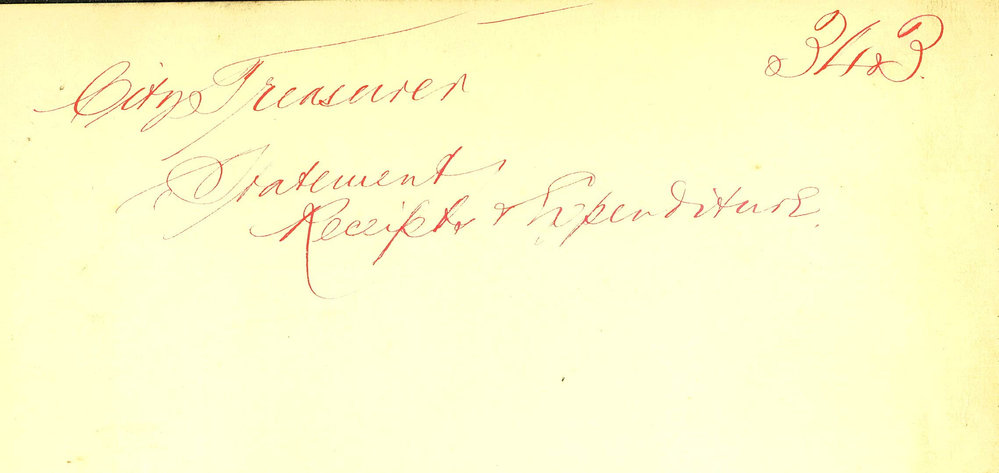 343.
City Treasurer
Statement
Receipts & Expenditure.